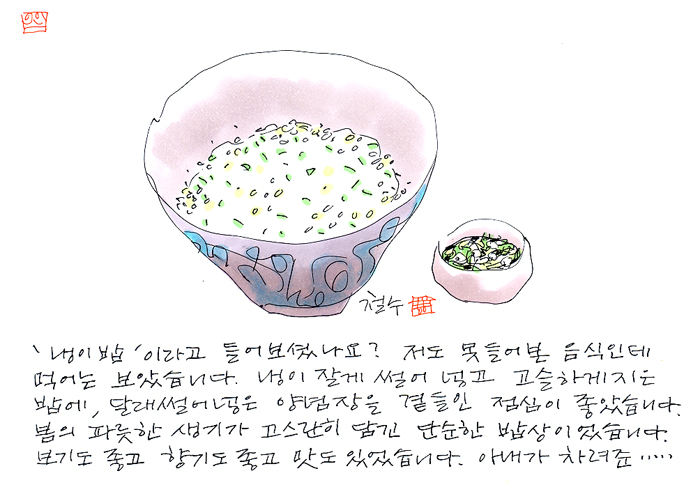 철수
'냉이밥'이라고 들어보셨나요? 저도 못들어본 음식인데
먹어는 보았습니다. 냉이 잘게 썰어 넣고 고슬하게 지은
밥에, 달래썰어넣은 양념장을 곁들인 점심이 좋았습니다.
봄의 파릇한 생기가 고스란히 담긴 단순한 밥상이었습니다.
보기도 좋고 향기도 좋고 맛도 있었습니다. 아내가 차려준·····